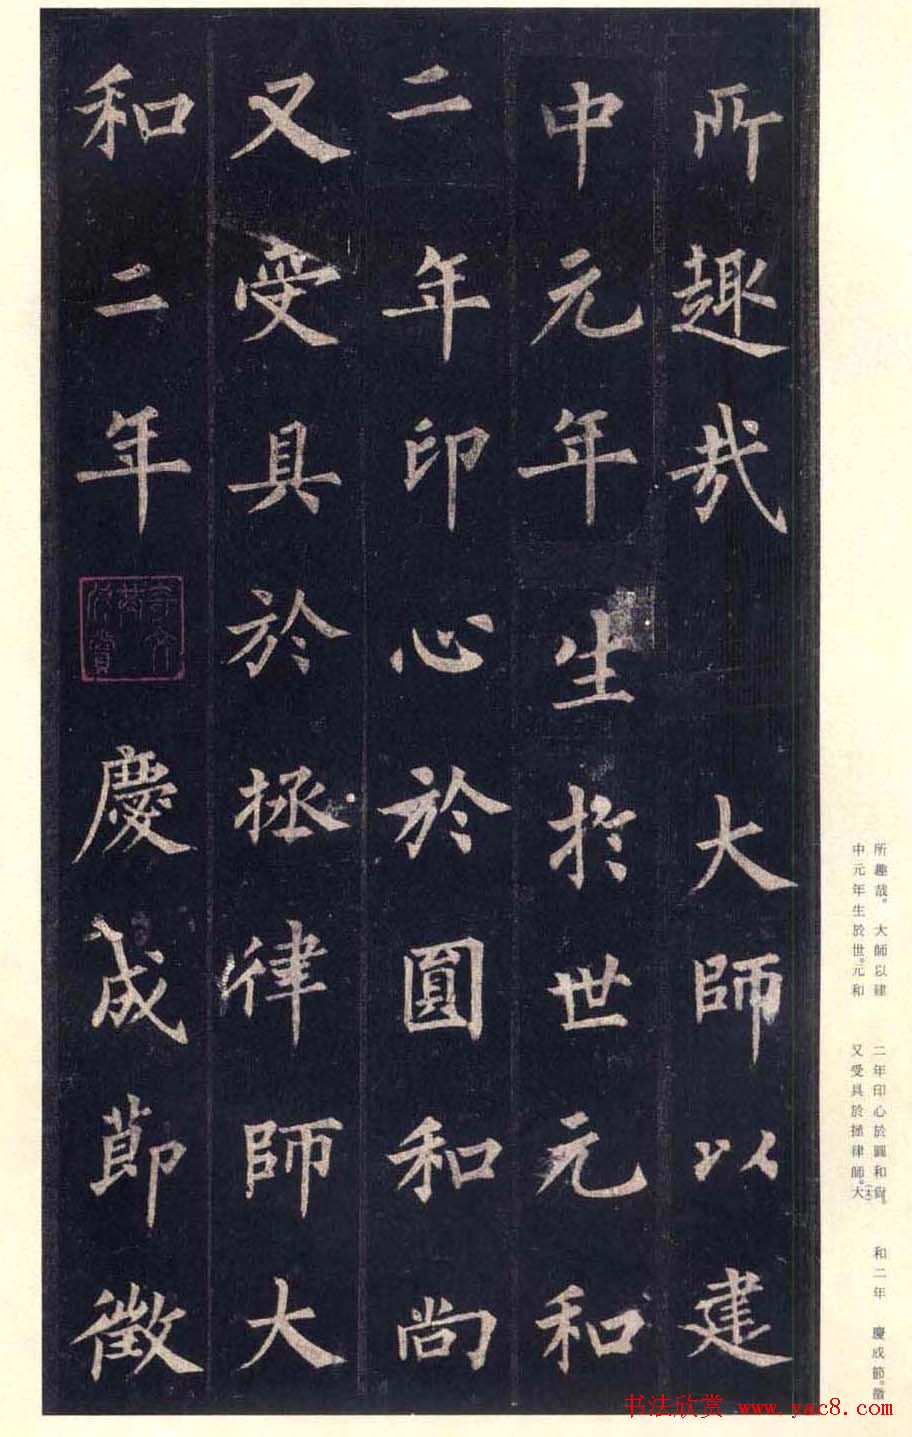 所趣哉 大師以建
中元年生扵世元和
二年印心於圓和尚
又受具於拯律師大
和二年 慶成節徵
所趣哉。 大師以建
中元年生於世。元和
二年印心於圓和尚。
又受具於拯律師。大(太)
和二年 慶成節。徵
书法欣赏 www.yac8.com